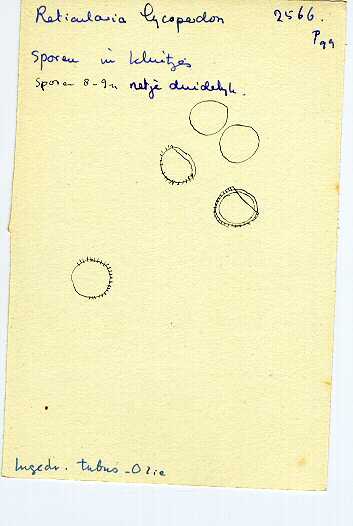 Reticularia Lycoperdon 2566.
P99
Sporen in kluitjes
Sporen 8-9u netje duidelyk.
Ingedr. tubus-Olie